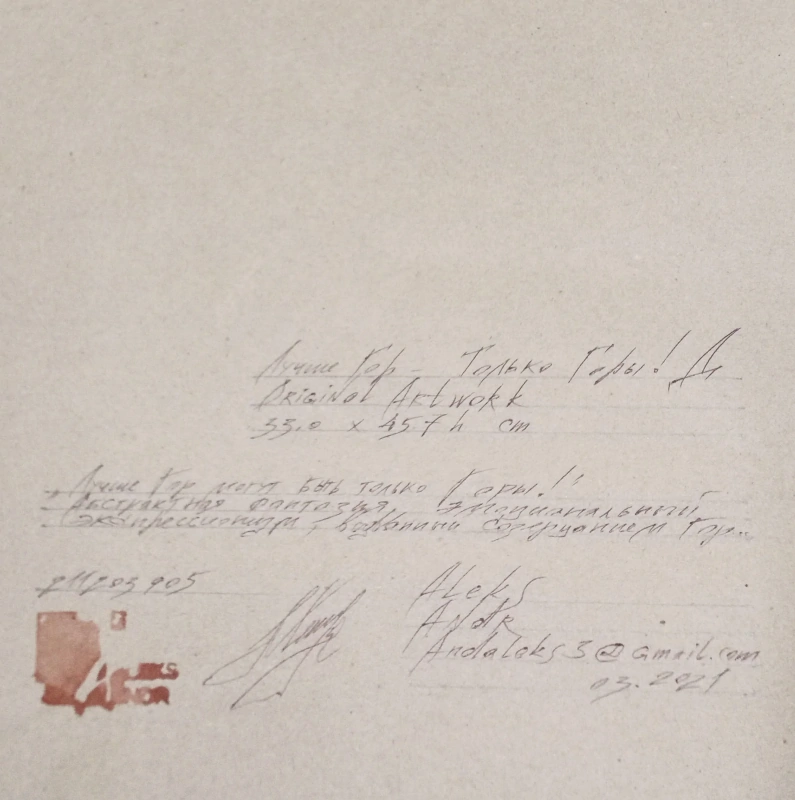 Лучше Гор - Только Горы! Д
Original Artwork
33.0 x 45.7 h cm
Лучше Гор могут быть только Горы!
Абстрактная фантазия, эмоциональный
экспрессионизм, созерцанием Гор...
211203905
Aleks
Andr
Andaleks3@gmail.com
03.2021
ALEKS
ANDR